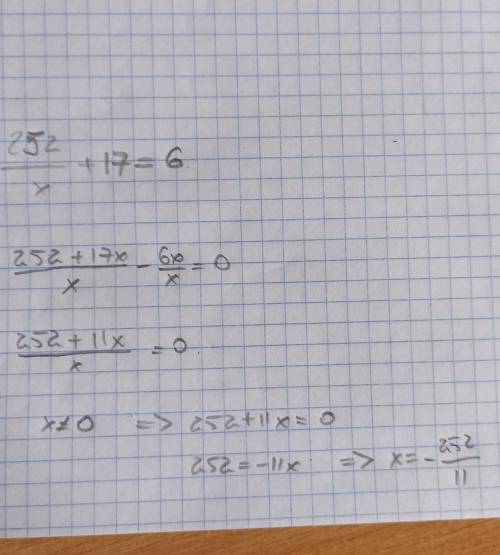 252/x + 17 = 6
(252 + 17x)/x - 6x/x = 0
(252 + 11x)/x = 0
x ≠ 0 => 252 + 11x = 0
252 = -11x => x = -252/11